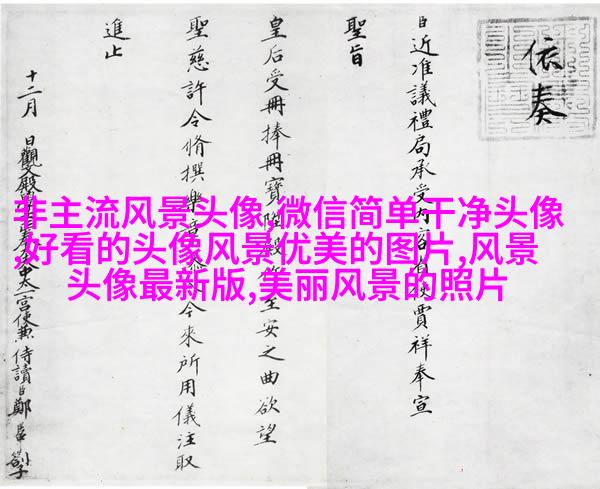 依奏
臣近准議禮局承受賈祥奉宣
聖旨
皇后受冊捧冊寶陞殿至安之曲欲望
聖慈許令脩撰樂章今來所用儀注取
進止
十二月 日觀文殿太一宮使兼侍讀臣鄭
非主流风景头像,微信简单干净头像
,好看的头像风景优美的图片,风景
头像最新版,美丽风景的照片